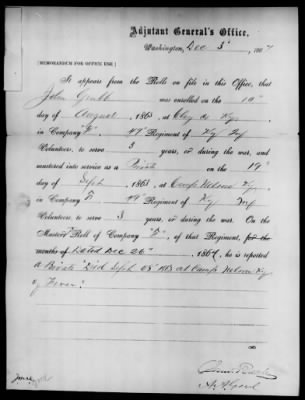 Adjutant General's Office,
Washington, Dec 3" 1867
[MEMORANDUM FOR OFFICE USE.]
It appears from the Rolls on file in this Office, that
John Grubb was enrolled on the 10"
day of August 1863 at Clay Co Ky.
in Company "F" 49" Regiment of Ky Inf
Volunteers, to serve 3 years, or during the war, and
mustered into service as a Private on the 19"
day of Sept 1863 at Camp Nelson Ky.
in Company F 49 Regiment of Ky Inf
Volunteers to serve 3 years, or during the war. On the
Muster Roll of Company "F", of that Regiment, for the
months of Dated Dec 26" 1864, he is reported
a Private "Died Sept 1863 at Camp Nelson Ky
of Fever."
A. A. Genl